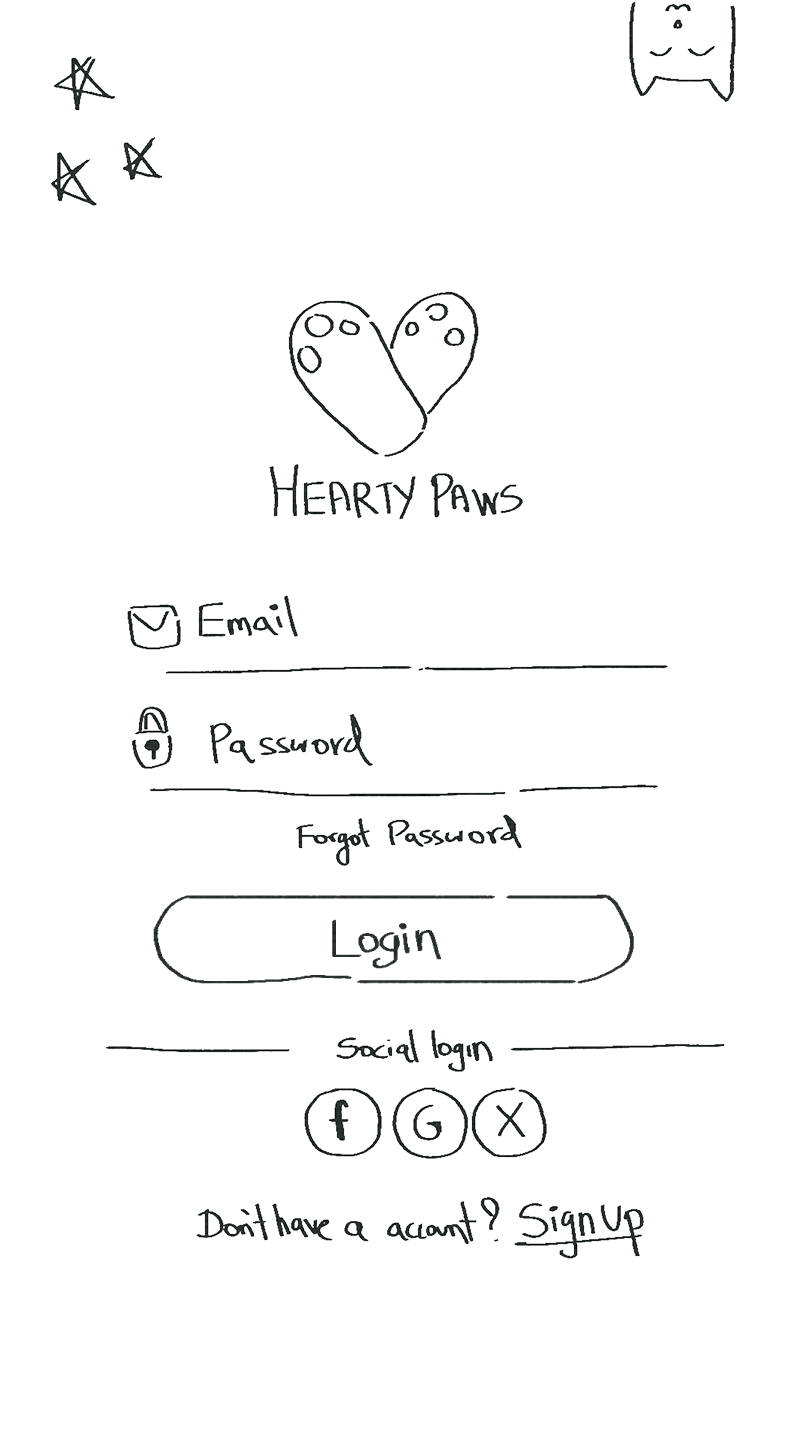 HEARTY PAWS
Email
Password
Forgot Password
Login
Social login
f G X
Don't have a account? Sign Up